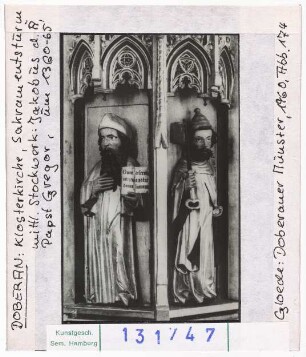 DOBERAN: Klosterkirche, Sakramentsturm
mittl. Stockwerk: Jakobus d. Ä
Papst Gregor, um 1360-65
Gloede: Doberaner Münster, 1960, Abb. 174
Kunstgesch.
Sem. Hamburg
131/47